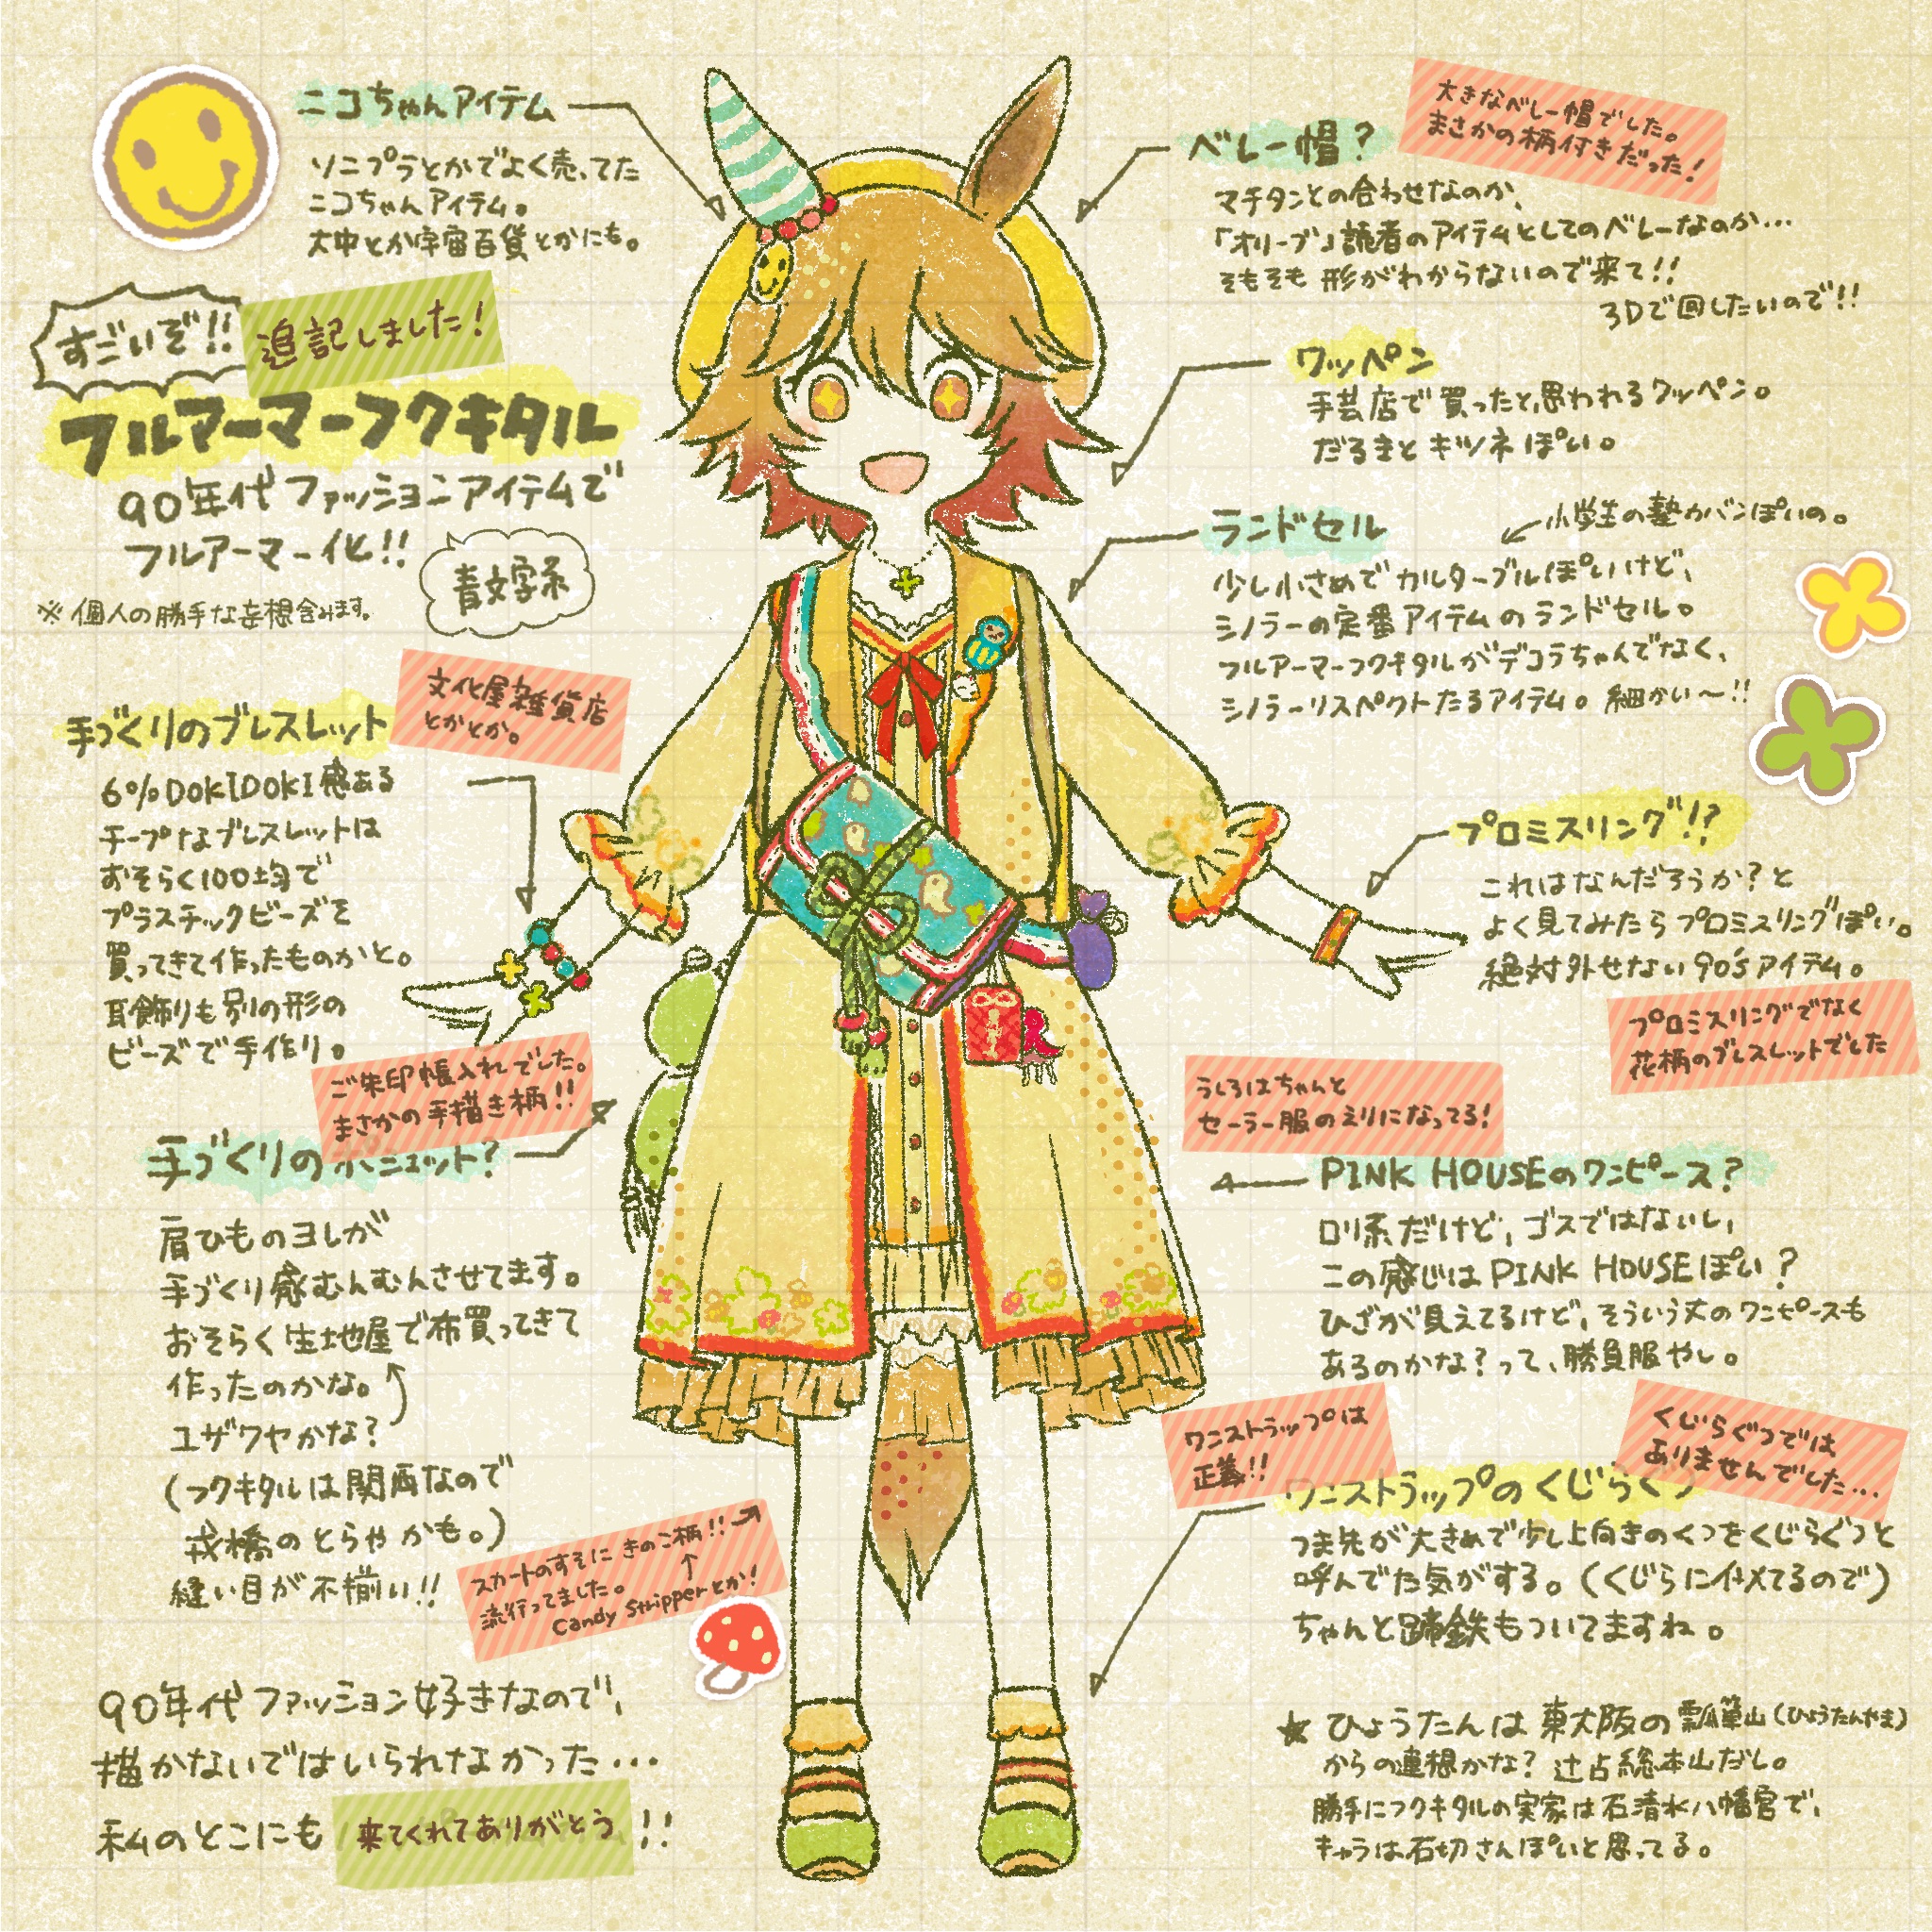 ニコちゃんアイテム
ソニプラとかでよく売ってた
ニコちゃんアイテム。
大中とか宇宙百貨とかにも。
すごいぞ!!
追記しました!
フルアーマーフクキタル
90年代ファッションアイテムで
フルアーマー化!!
青文字系
※個人の勝手な妄想含みます。
手づくりのブレスレット
文化屋雑貨店
とかとか。
6%DOKIDOKI感ある
チープなブレスレットは
おそらく100均で
プラスチックビーズを
買ってきて作ったものかと。
耳飾りも別の形の
ビーズで手作り。
ご朱印帳入れでした。
まさかの手描き柄!!
手づくりのポシェット?
肩ひものヨレが
手づくり感むんむんさせてます。
おそらく生地屋で布買ってきて
作ったのかな。
ユザワヤかな?
(フクキタルは関西なので
戎橋のとらやかも。)
縫い目が不揃い!!
スカートのすそにきのこ柄!!
流行ってました。
Candy Stripperとか!
90年代ファッション好きなので、
描かないではいられなかった…
私のとこにも
来てくれてありがとう
!!
ベレー帽?
大きなベレー帽でした。
まさかの柄付きだった!
マチタンとの合わせなのか、
「オリーブ」読者のアイテムとしてのベレーなのか…
そもそも形がわからないので来て!!
3Dで回したいので!!
ワッペン
手芸店で買ったと思われるワッペン。
だるまとキツネぽい。
ランドセル
小学生の塾カバンぽいの。
少し小さめでカルターブルぽいけど、
シノラーの定番アイテムのランドセル。
フルアーマーフクキタルがデコラちゃんでなく、
シノラーリスペクトたるアイテム。細かい〜!!
プロミスリング!?
これはなんだろうか?と
よく見てみたらプロミスリングぽい。
絶対外せない90'sアイテム。
プロミスリングでなく
花柄のブレスレットでした
うしろはちゃんと
セーラー服のえりになってる!
PINK HOUSEのワンピース?
ロリ系だけど、ゴスではないし、
この感じはPINK HOUSEぽい?
ひざが見えてるけど、そういう丈のワンピースも
あるのかな?って、勝負服やし。
ワンストラップは
正義!!
くじらぐつでは
ありませんでした…
ワンストラップのくじらぐつ
つま先が大きめで少し上向きのくつをくじらぐつと
呼んでた気がする。(くじらに似てるので)
ちゃんと蹄鉄もついてますね。
★ ひょうたんは東大阪の瓢箪山(ひょうたんやま)
からの連想かな? 辻占総本山だし。
勝手にフクキタルの実家は石清水八幡宮で、
キャラは石切さんぽいと思ってる。